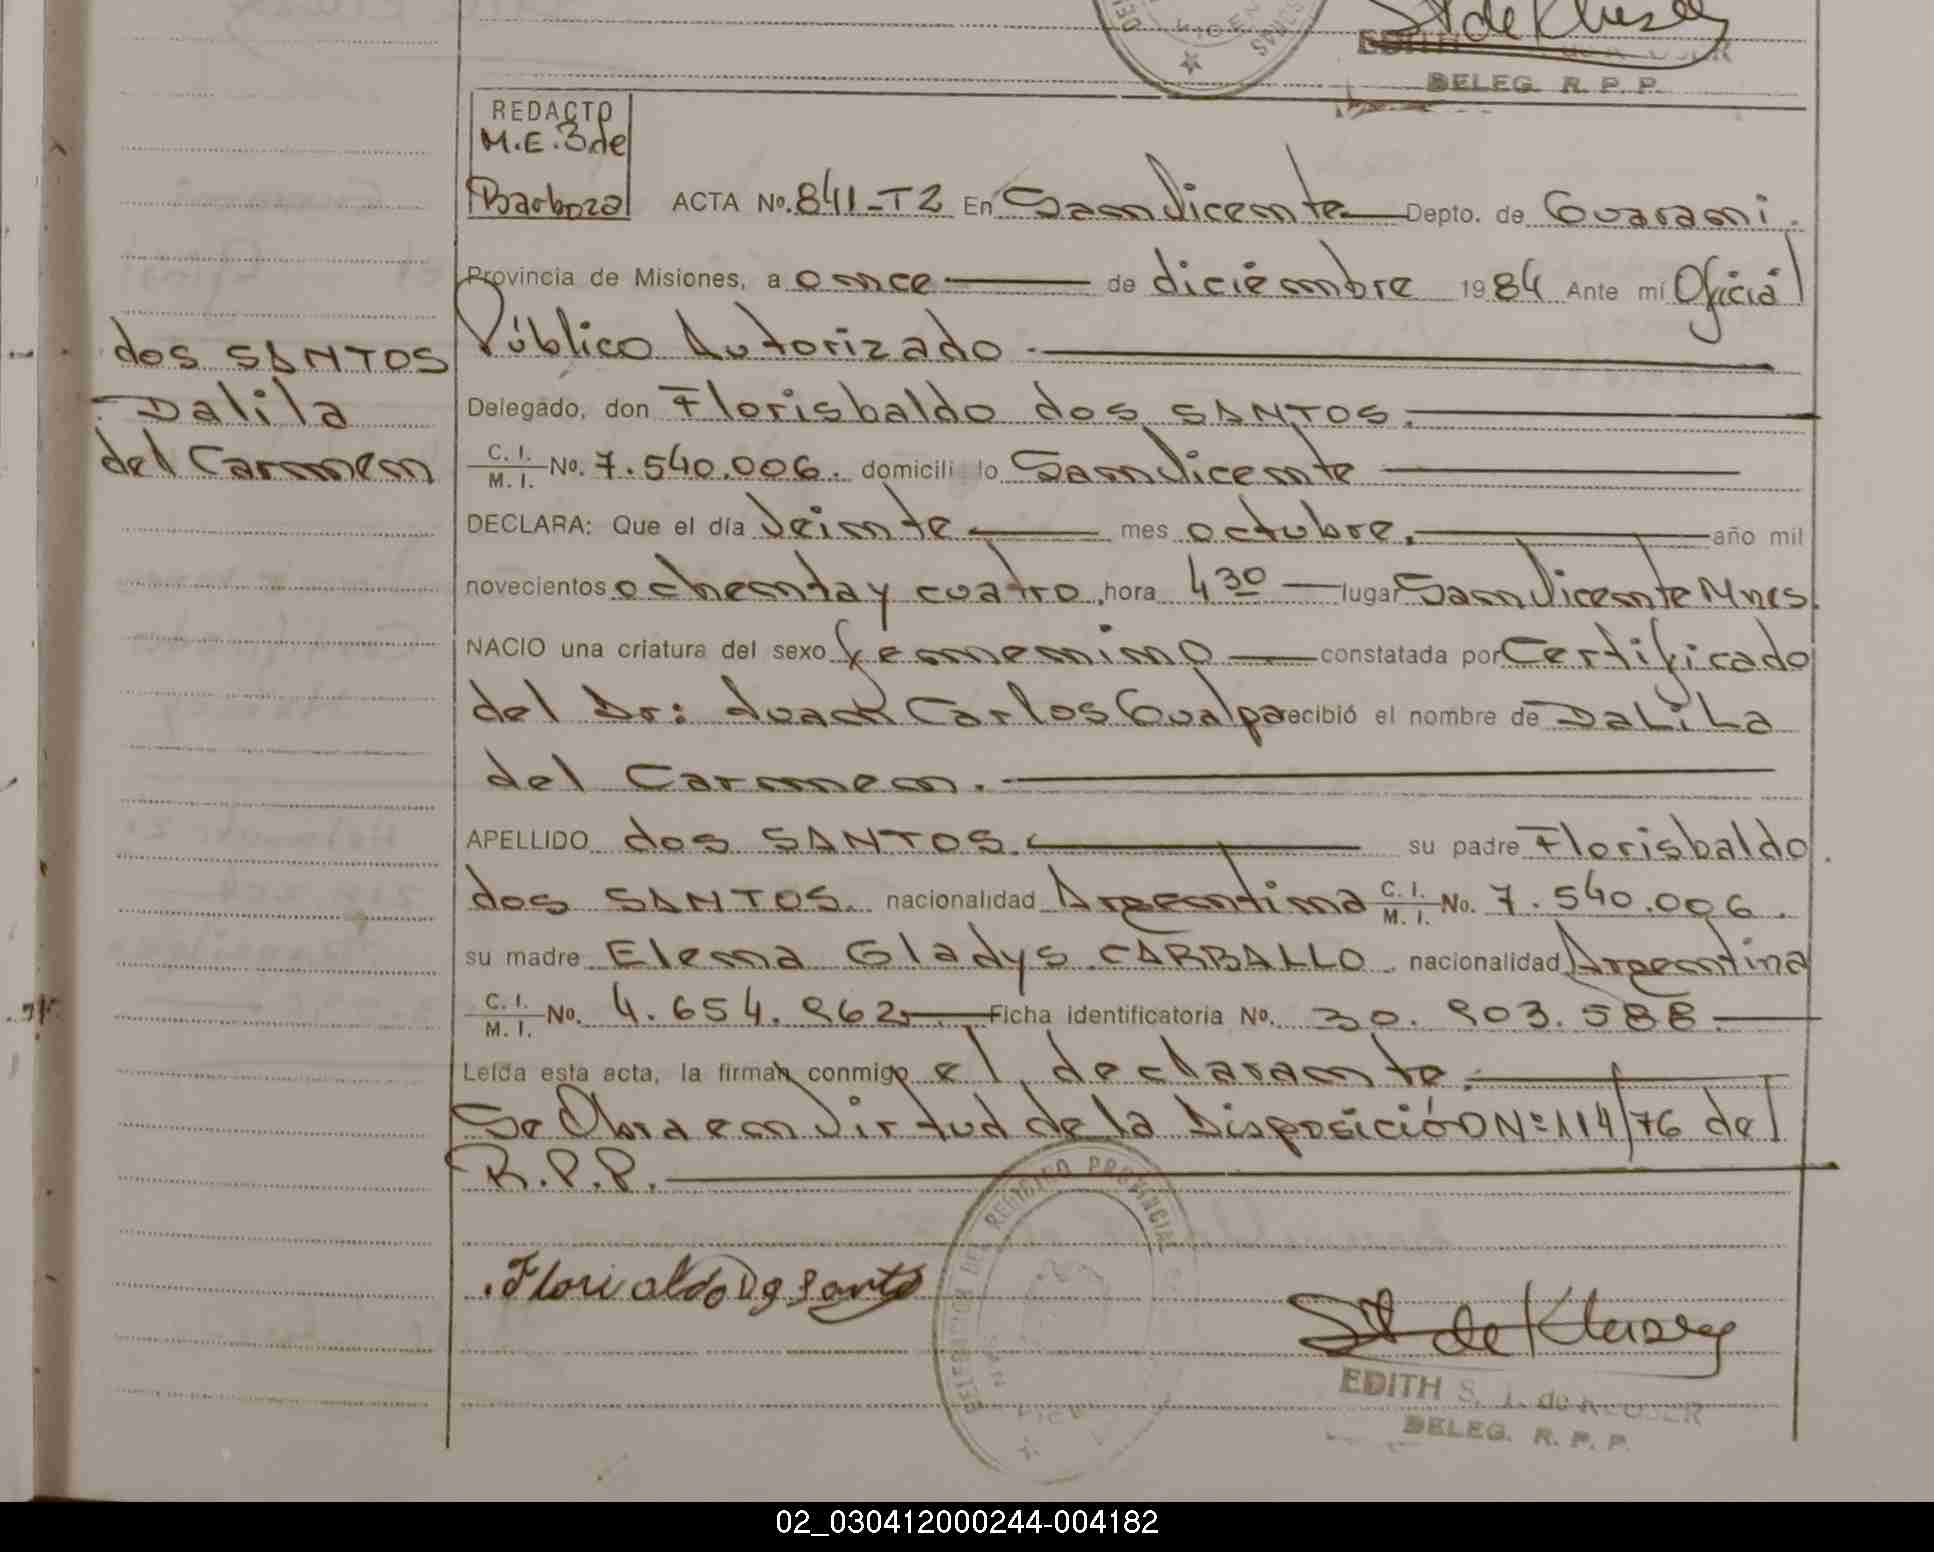 DELEG. R. P. P.
REDACTO
M.E.B de
Barboza
ACTA No. 841-T2 En San Vicente Depto. de Guaraní.
Provincia de Misiones, a once de diciembre 1984 Ante mí Oficial
Público Autorizado.
dos SANTOS
Dalila
del Carmen
Delegado, don Florisbaldo dos SANTOS.
C. I. M. I. No. 7.540.006. domicili lo San Vicente
DECLARA: Que el día Veinte mes octubre. año mil
novecientos ochenta y cuatro, hora 4 30 lugar San Vicente Mnes.
NACIO una criatura del sexo femenino constatada por Certificado
del Dr: Juan Carlos Gualpa recibió el nombre de DaLiLa
del Carmen.
APELLIDO dos SANTOS. su padre Florisbaldo
dos SANTOS. nacionalidad Argentina C. I. M. I. No. 7.540.006.
su madre Elena Gladys CARBALLO. nacionalidad Argentina
C. I. M. I. No. 4.654.962. Ficha identificatoria No. 30.903.588.
Leída esta acta, la firman conmigo el declarante.
Se Obra en Virtud de la Disposición Nº 114/76 del
R.P.P.
DELEGACION DEL REGISTRO PROVINCIAL
EDITH S. I. de KLUSER
DELEG. R. P. P.
02_030412000244-004182